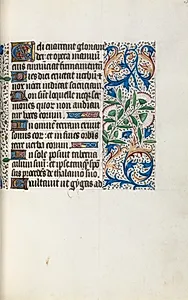 Celi enarrant gloriam
dei et opera manuu
eius annuciat firmamentum
Dies diei eructat verbum et
nox nocti indicat scienciam
Non sunt loquele neque ser
mones quorum non audian
tur voces eorum
In omnem terram exivit
sonus eorum et in fines orbis
terre verba eorum
In sole posuit taberna
culum suum et ipse tanquam spon
sus procedens de thalamo suo
Exultavit ut gygas ad